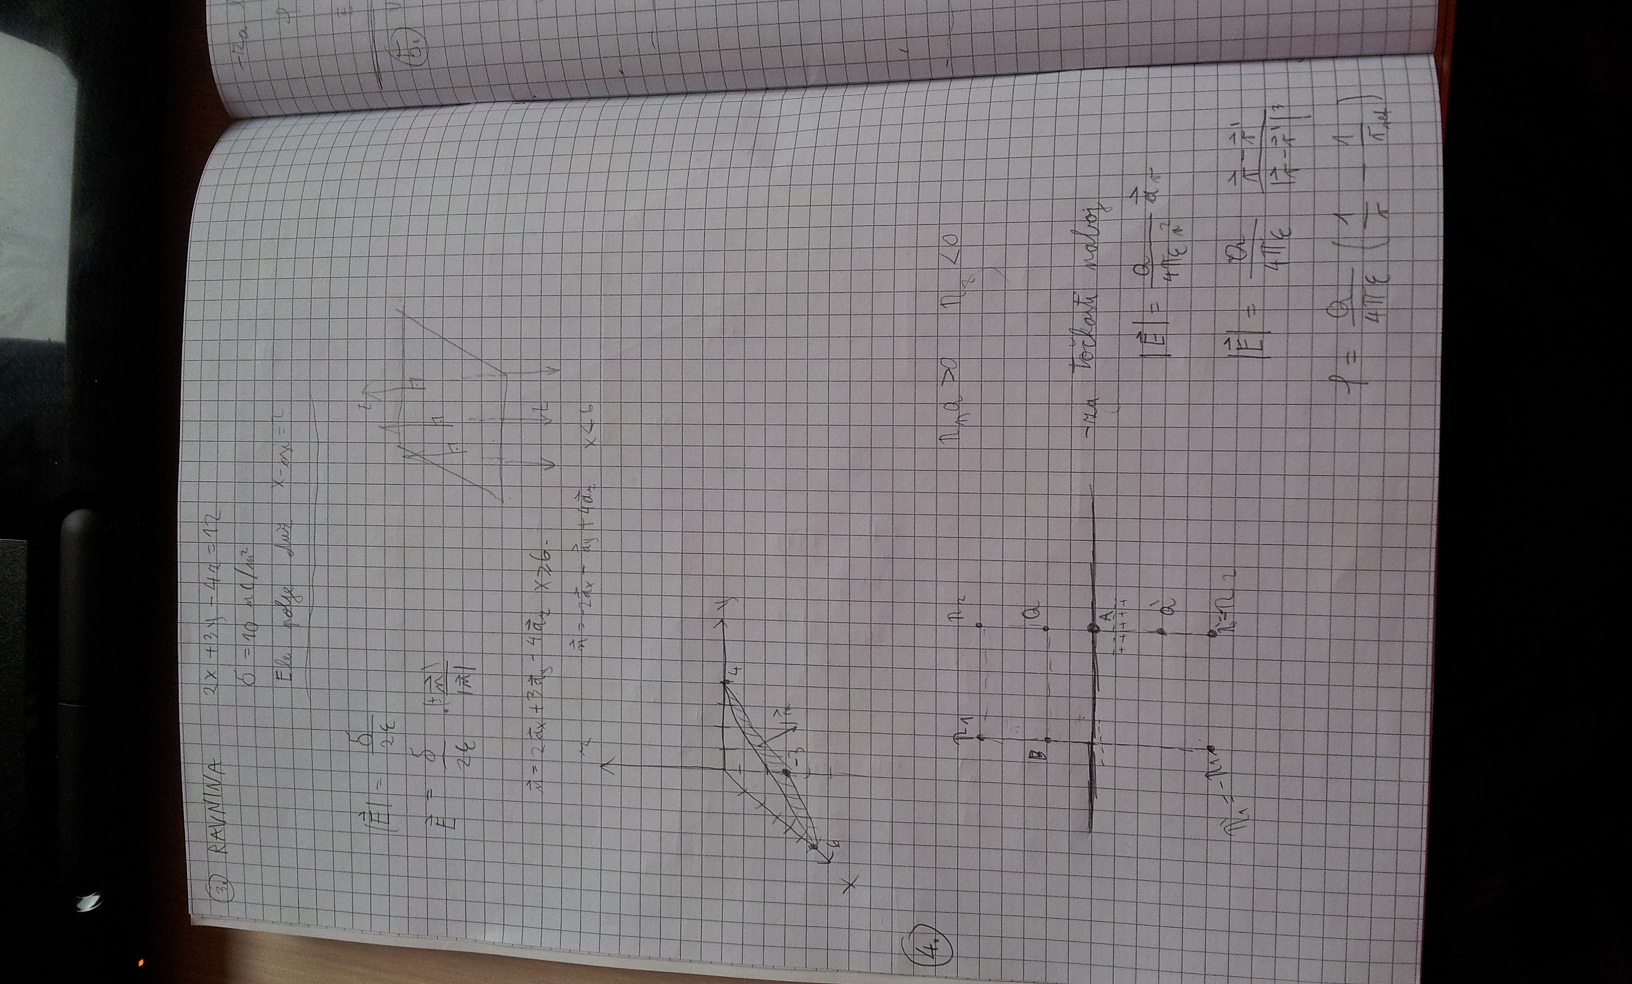 3. RAVNINA 2x + 3y - 4z = 12
σ = 10 nC/m²
Ele polje duž x-osi = ?
|E⃗| = σ / 2ε
E⃗ = σ / 2ε · (± n⃗) / |n⃗|
z
n⃗ = 2a⃗x + 3a⃗y - 4a⃗z x ≥ 6
z
n⃗ = -2a⃗x - a⃗y + 4a⃗z x < 6
z
y
4
-3
n⃗
6
x
4.
B
Q
A
- - - -
+ + + + +
Q'
-za točkasti naboj
|E⃗| = Q / 4πεr² a⃗r
|E⃗| = Q / 4πε (r⃗ - r⃗') / |r⃗ - r⃗'|³
φ = Q / 4πε (1/r - 1/rref)
-za
φ
E
5.